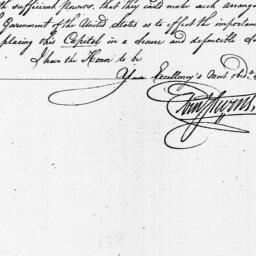 th sufficient Powers, that they could make such arrange
Government of the United States as to effect the importan
placing this Capital in a secure and defensible S
I have the Honor to be
Your Excellency's Most Obd.